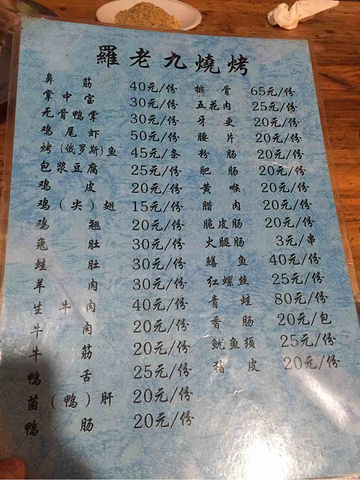 羅老九燒烤
鼻筋 40元/份
掌中宝 30元/份
无骨鸭掌 30元/份
鸡尾虾 50元/份
烤(俄罗斯)鱼 45元/条
包浆豆腐 25元/份
鸡皮 20元/份
鸡(尖)翅 15元/份
鸡翘 20元/份
兔肚 30元/份
蛙肚 30元/份
羊肉 30元/份
生牛肉 40元/份
牛肉 20元/份
牛筋 20元/份
鸭舌 25元/份
菌(鸭)肝 20元/份
鸭肠 20元/份
排骨 65元/份
五花肉 25元/份
牙更 20元/份
腰片 20元/份
粉肠 20元/份
肥肠 20元/份
黄喉 20元/份
腊肉 20元/份
脆皮肠 20元/份
火腿肠 3元/串
鳝鱼 40元/份
红螺丝 25元/份
青蛙 80元/份
香肠 20元/包
鱿鱼须 25元/份
猪皮 20元/份